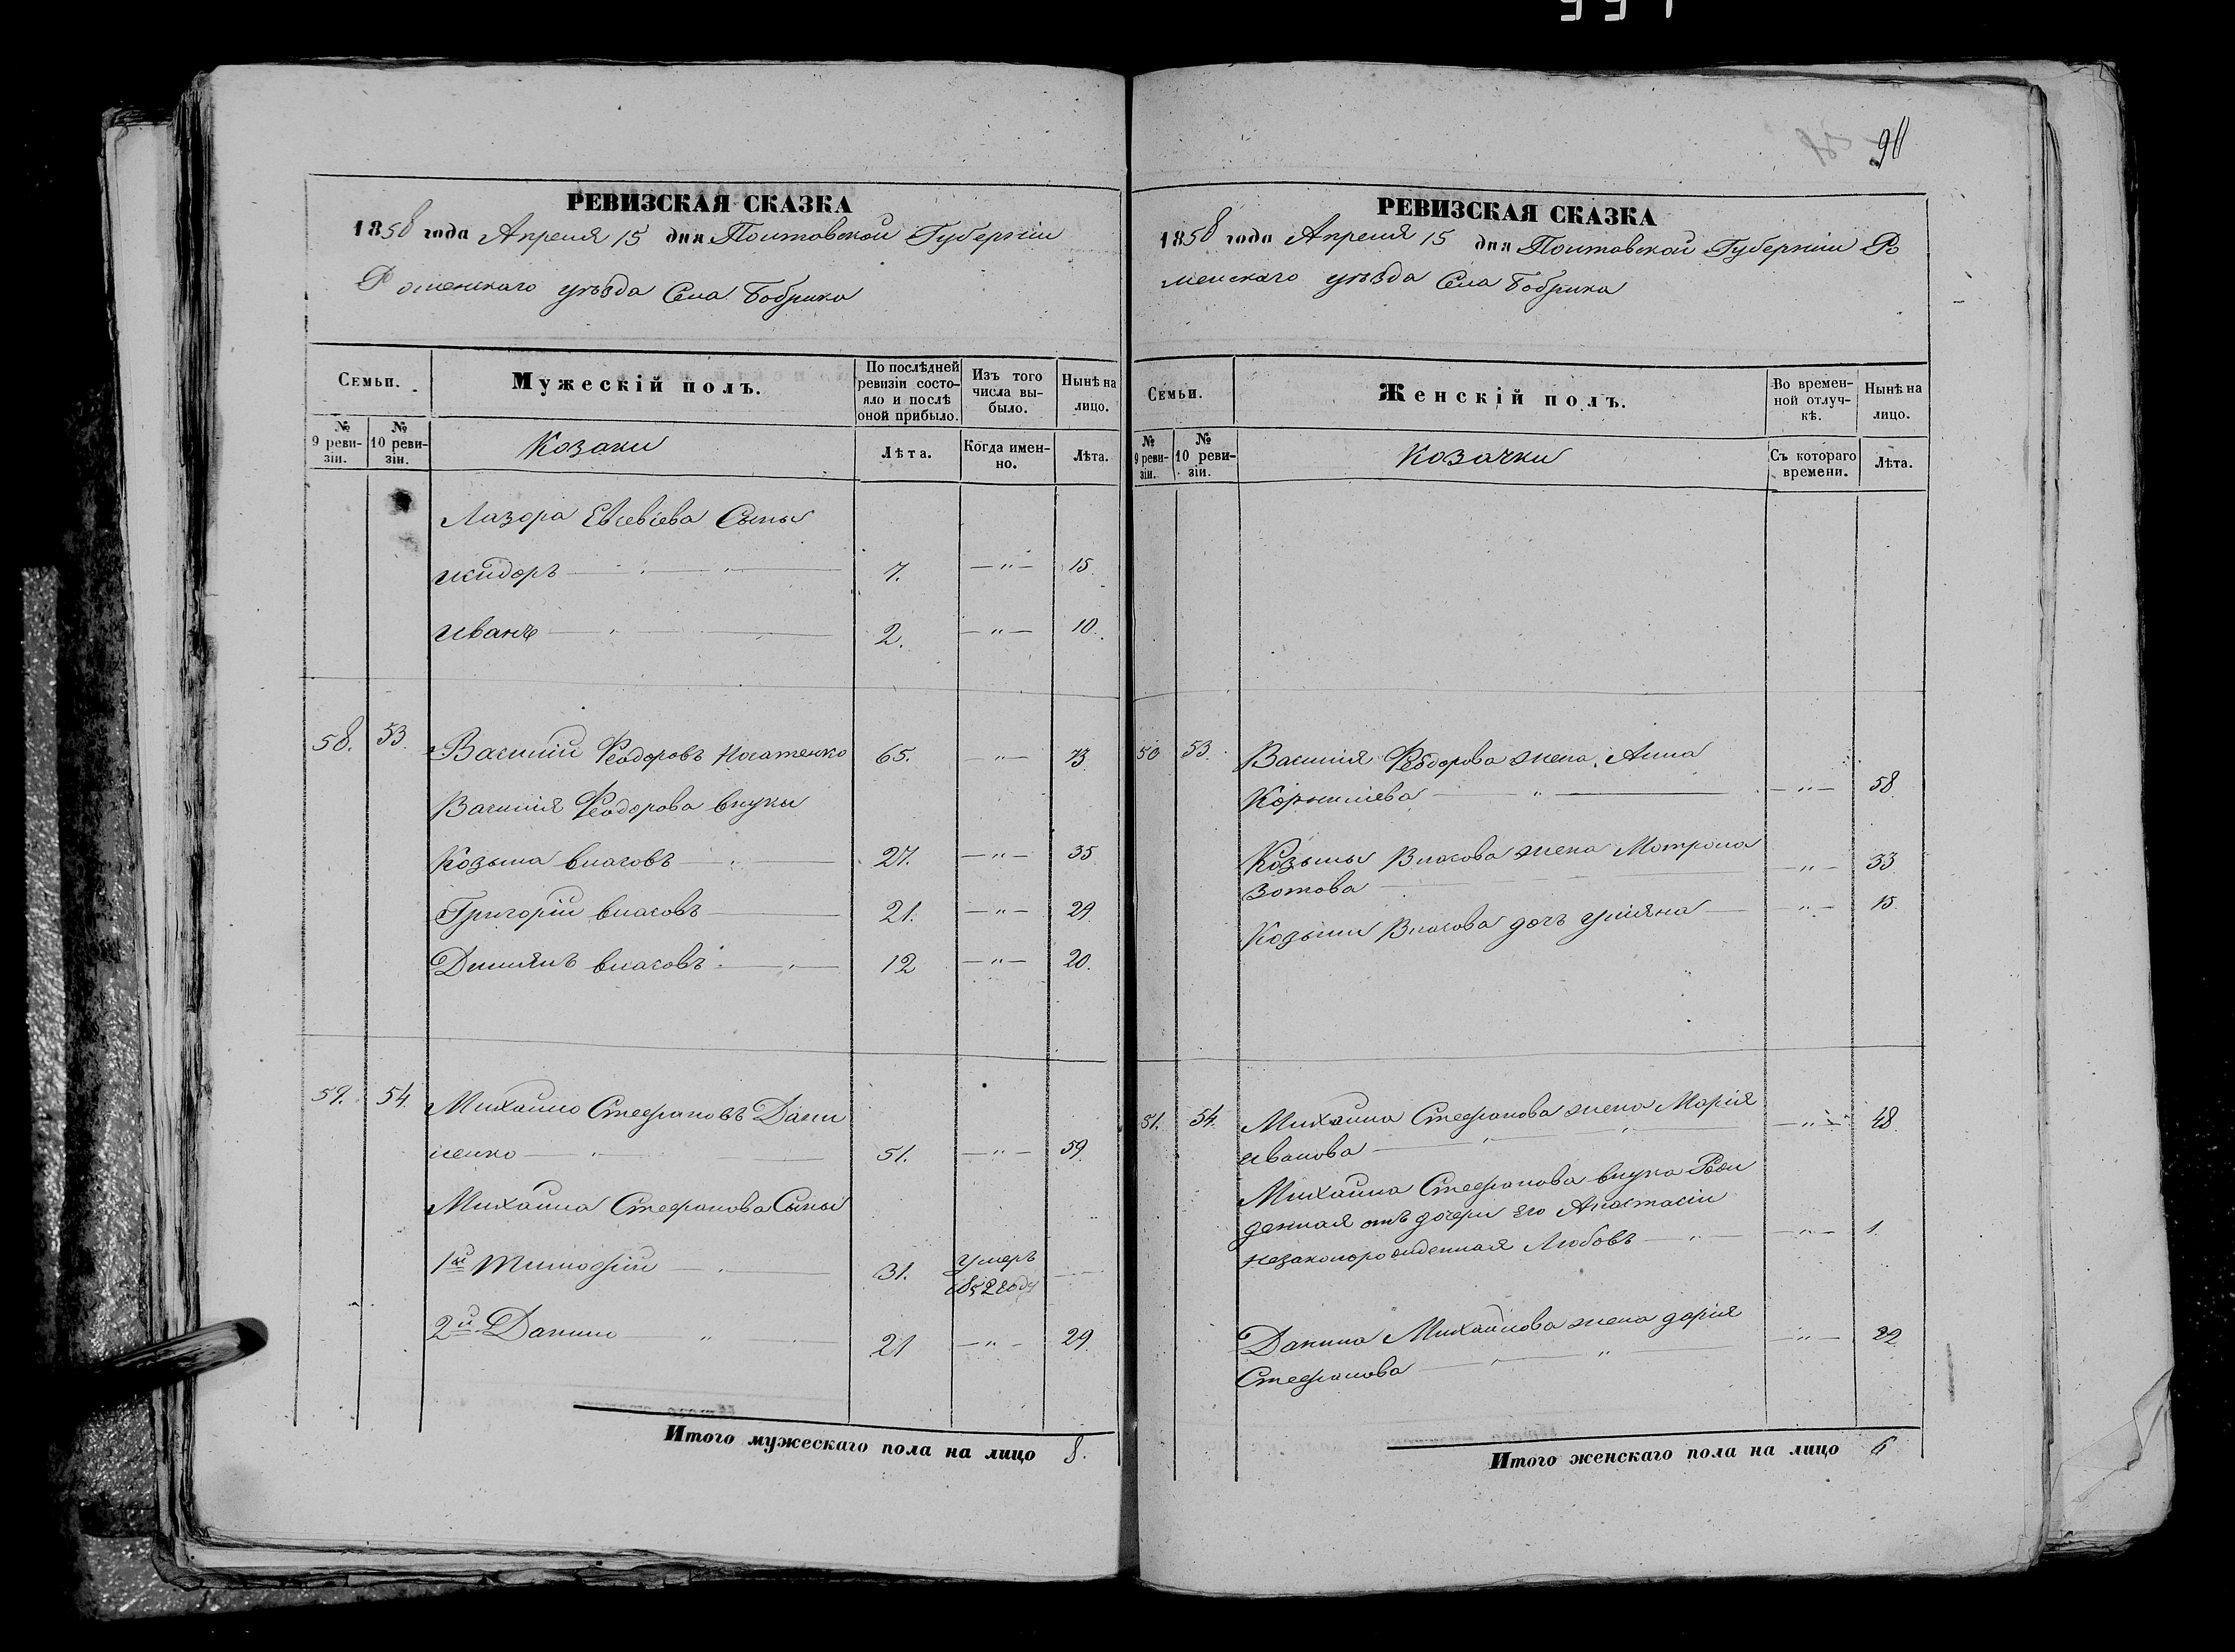 90
РЕВИЗСКАЯ СКАЗКА
1858 года Апреля 15 дня Полтавской Губерніи
Роменскаго уѣзда Села Бобрика
Семьи.
Мужескій полъ.
По послѣдней ревизіи состояло и послѣ оной прибыло.
Изъ того числа выбыло.
Нынѣ на лицо.
№ 9 ревизіи.
№ 10 ревизіи.
Козаки
Лѣта.
Когда именно.
Лѣта.
Лазора Евсевіева Сыны
Исидоръ 7. —"— 15.
Иванъ 2. —"— 10.
58. 53. Василій Феодоровъ Носатенко 65. —"— 73
Василія Феодорова внуки
Козьма власовъ 27. —"— 35
Григорій власовъ 21. —"— 29.
Диміянъ власовъ 12 —"— 20.
59. 54. Михайло Стефановъ Дани
ленко 51. —"— 59.
Михаила Стефанова Сыны
1й Тимофій 31. умеръ
1852 году
2й Данило 21 —"— 29.
Итого мужескаго пола на лицо 8.
РЕВИЗСКАЯ СКАЗКА
1858 года Апреля 15 дня Полтавской Губерніи Ро
менскаго уѣзда Села Бобрика
Семьи.
Женскій полъ.
Во временной отлучкѣ.
Нынѣ на лицо.
№ 9 ревизіи.
№ 10 ревизіи.
Козачки
Съ котораго времени.
Лѣта.
50 53. Василія Феодорова жена Анна
Корниліева —"— 58.
Козьмы Власова жена Мотрона
Зотова —"— 33.
Козьми Власова дочъ Уліяна —"— 15.
51. 54. Михаила Стефанова жена Марія
Иванова —"— 48.
Михаила Стефанова внука Рож
денная отъ дочери его Анастасіи
незаконорожденная Любовъ —"— 1.
Данила Михайлова жена дарія
Стефанова —"— 22.
Итого женскаго пола на лицо 6